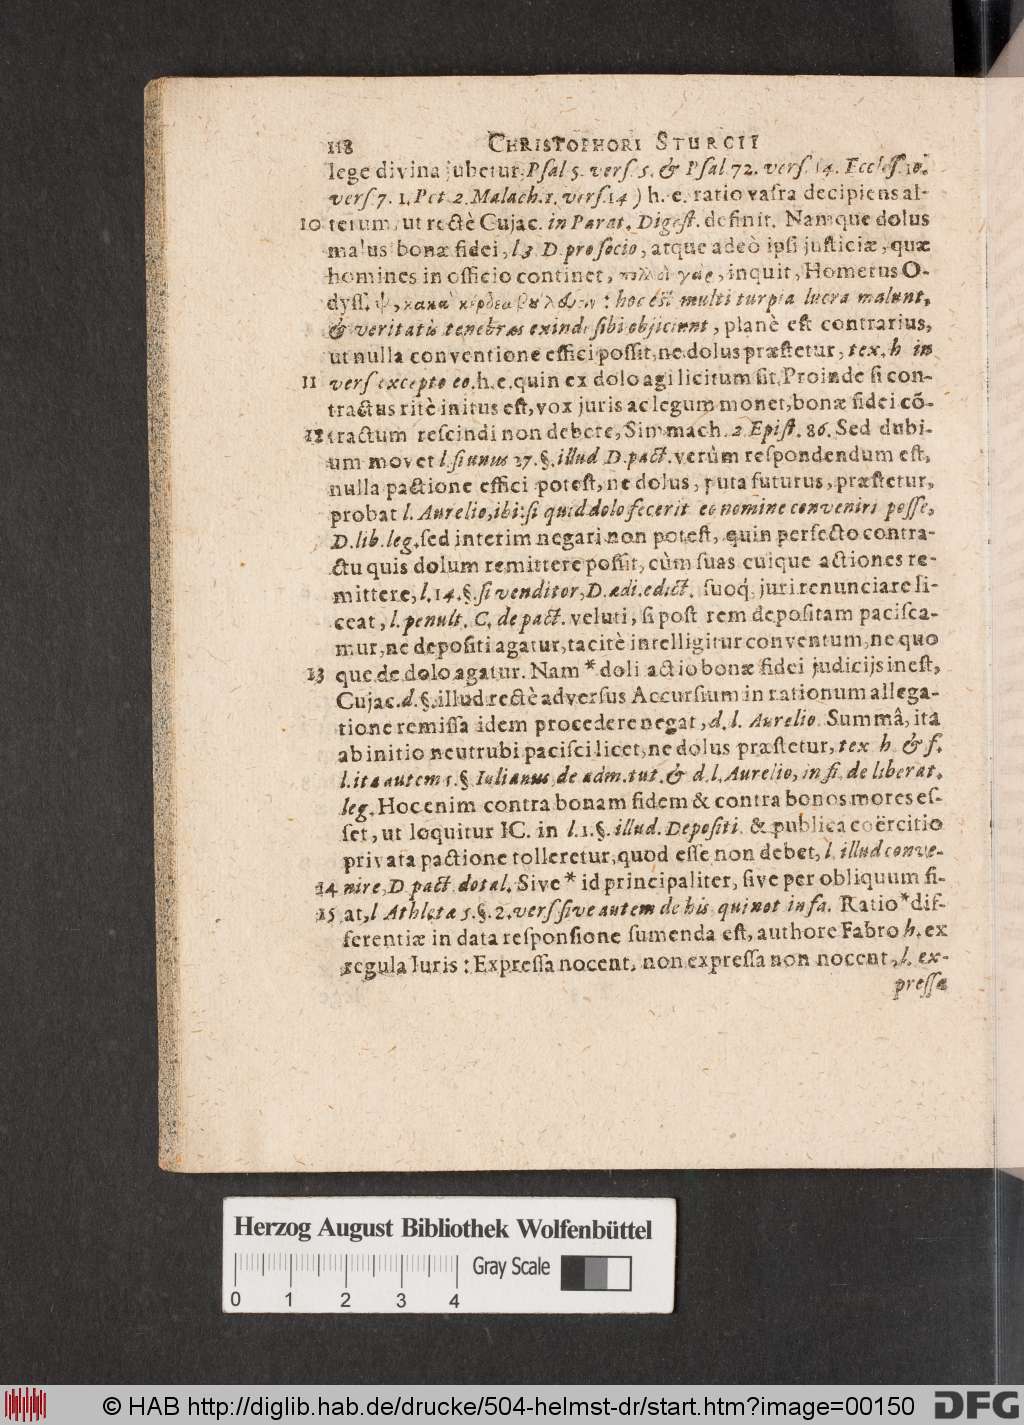 118 CHRISTOPHORI STURCII
lege divina jubetur, Psal 5. vers. 5. & Psal 72. vers. 14. Eccles. 10.
vers 7. 1. Pet 2. Malach. 1. vers. 14 ) h. e. ratio vafra decipiens al-
10 terum, ut rectè Cujac. in Parat. Digest. definit. Namque dolus
malus bonæ fidei, l 3 D. pro socio, atque adeò ipsi justiciæ, quæ
homines in officio continet, πολλοὶ γάρ, inquit, Homerus O-
dyss. ψ, κακὰ κέρδεα βουλεύουσιν : hoc est multi turpia lucra malunt,
& veritatis tenebras exinde sibi objiciunt, planè est contrarius,
ut nulla conventione effici possit, ne dolus præstetur, tex. h in
11 vers excepto eo. h. e. quin ex dolo agi licitum sit. Proinde si con-
tractus ritè initus est, vox juris ac legum monet, bonæ fidei cõ-
12 tractum rescindi non debere, Simmach. 2 Epist. 86. Sed dubi-
um movet l. si unus 27. §. illud D. pact. verùm respondendum est,
nulla pactione effici potest, ne dolus, puta futurus, præstetur,
probat l. Aurelio, ibi: si quid dolo fecerit eo nomine conveniri posse,
D. lib. leg. sed interim negari non potest, quin perfecto contra-
ctu quis dolum remittere possit, cùm suas cuique actiones re-
mittere, l. 14. §. si venditor, D. ædi. edict. suoq́; juri renunciare li-
ceat, l. penult. C. de pact. veluti, si post rem depositam pacisca-
mur, ne depositi agatur, tacitè intelligitur conventum, ne quo
13 que de dolo agatur. Nam * doli actio bonæ fidei judicijs inest,
Cujac. d. §. illud rectè adversus Accursium in rationum allega-
tione remissa idem procedere negat, d. l. Aurelio. Summâ, ita
ab initio neutrubi pacisci licet, ne dolus præstetur, tex h. & f.
l. ita autem 5. §. Iulianus, de adm. tut. & d. l. Aurelio, in fi. de liberat.
leg. Hoc enim contra bonam fidem & contra bonos mores es-
set, ut loquitur IC. in l. 1. §. illud. Depositi. & publica coërcitio
privata pactione tolleretur, quod esse non debet, l. illud conve-
14 nire, D. pact. dotal. Sive * id principaliter, sive per obliquum fi-
15 at, l Athleta 5. §. 2. vers sive autem de his qui not infa. Ratio * dif-
ferentiæ in data responsione sumenda est, authore Fabro h. ex
regula Iuris : Expressa nocent, non expressa non nocent, l. ex-
pressa
Herzog August Bibliothek Wolfenbüttel
Gray Scale
0 1 2 3 4
© HAB http://diglib.hab.de/drucke/504-helmst-dr/start.htm?image=00150 DFG